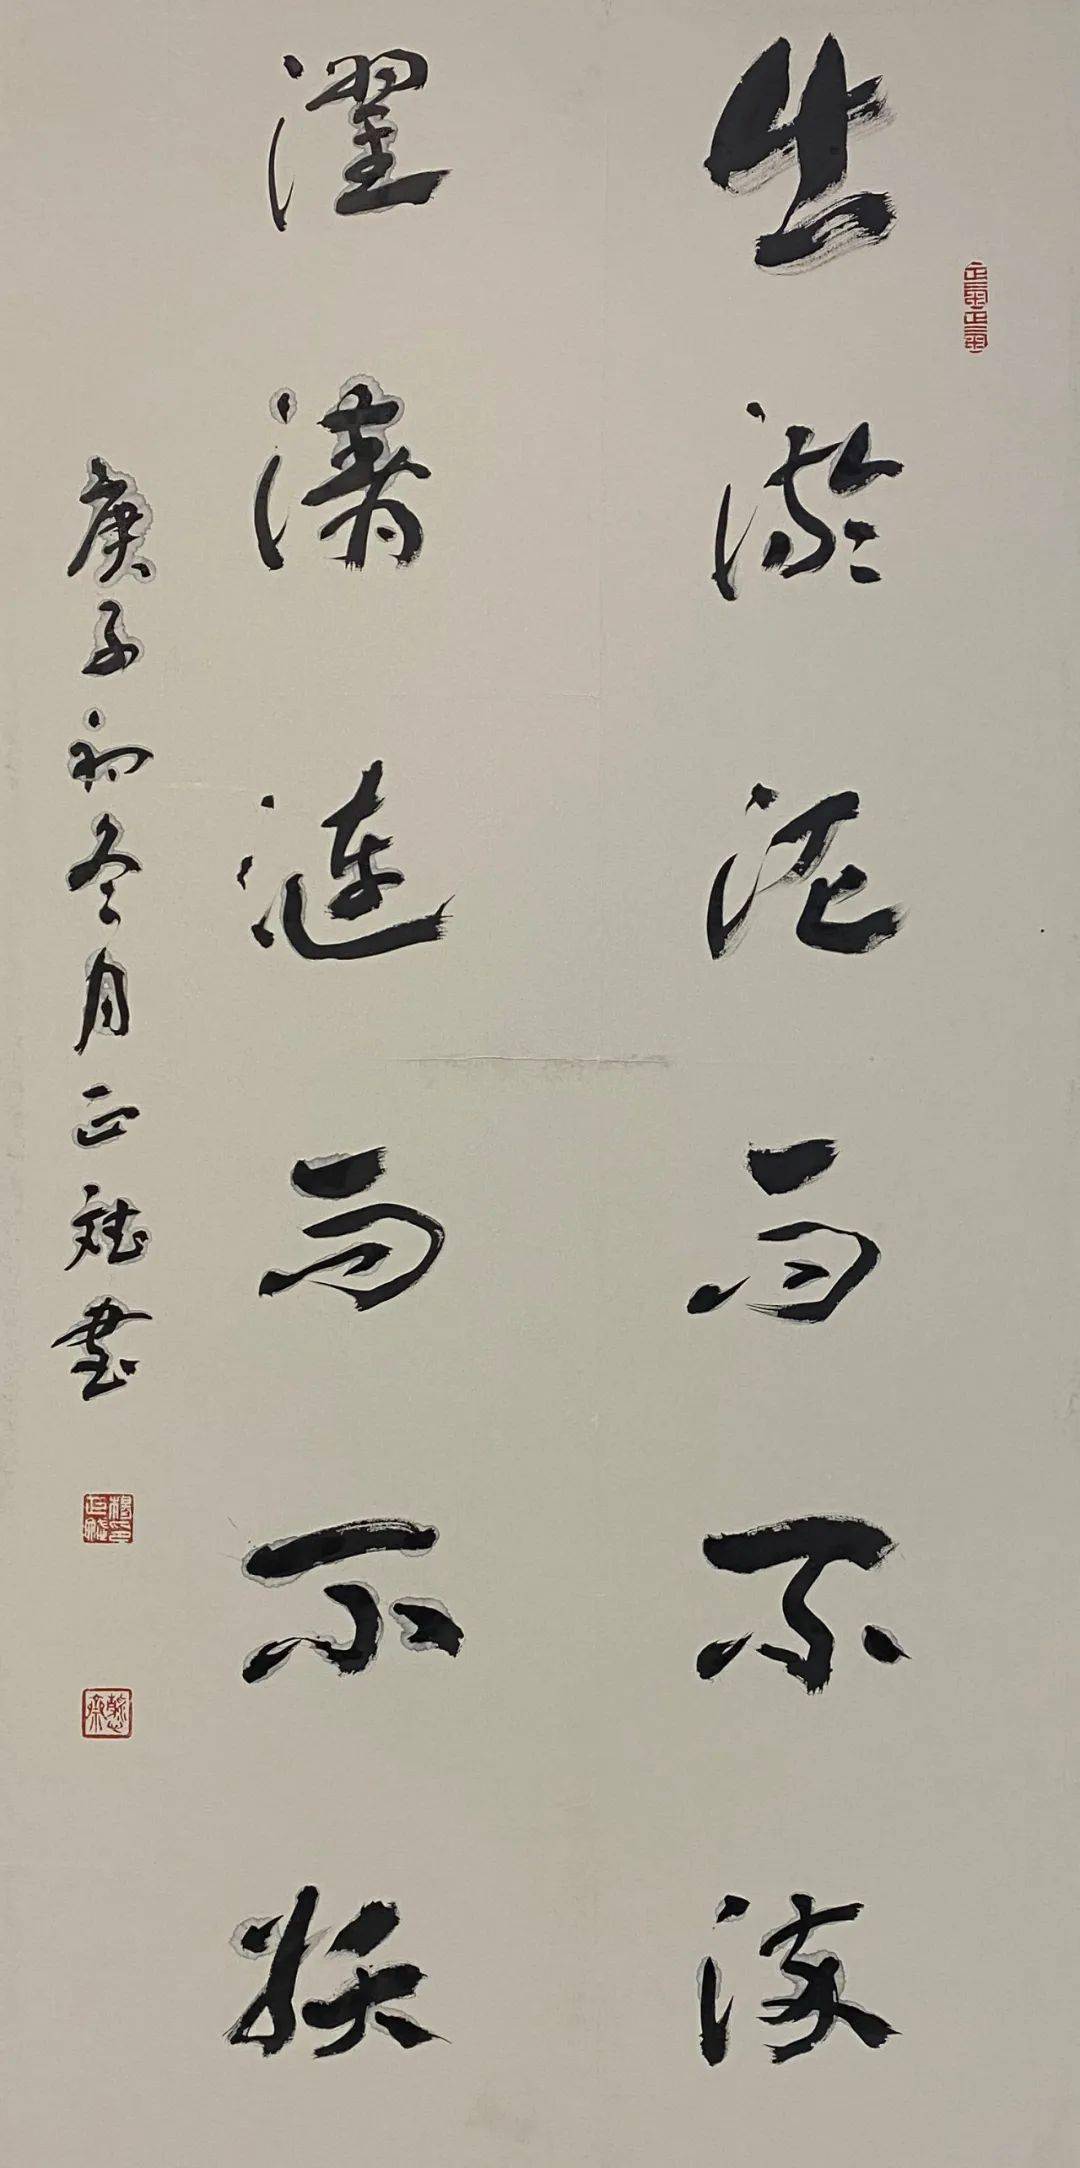 出淤泥而不染
濯清漣而不妖
庚子初冬月正斌書